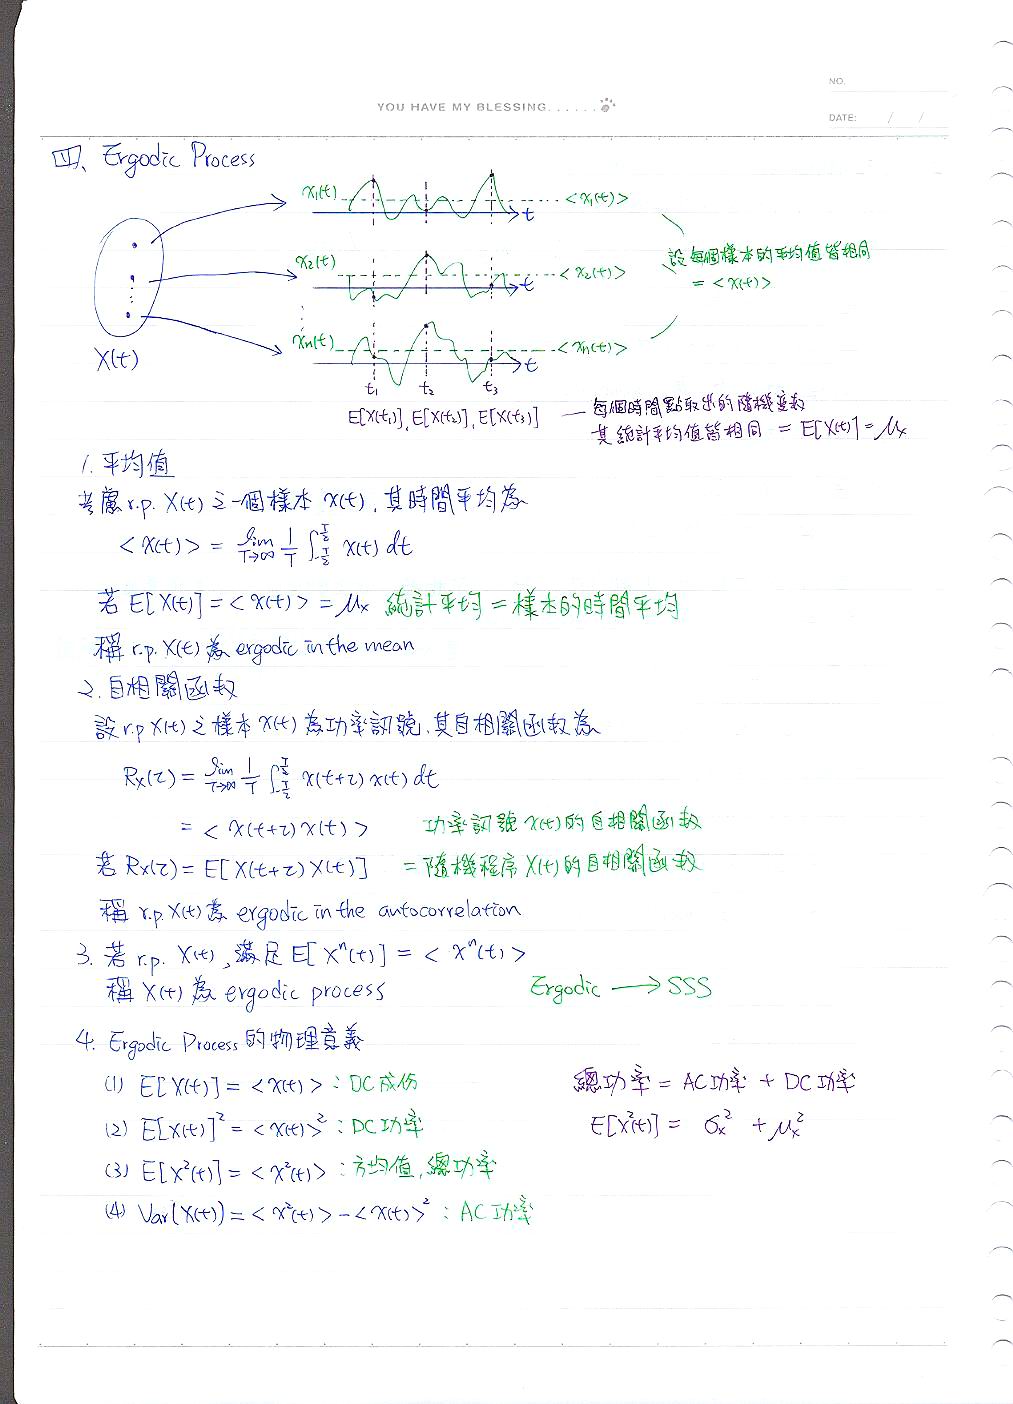 NO.
YOU HAVE MY BLESSING......
DATE: / /
四、Ergodic Process
x₁(t) <x₁(t)>
t
x₂(t) <x₂(t)>
t
設每個樣本的平均值皆相同
= <x(t)>
xₙ(t) <xₙ(t)>
t
X(t)
t₁ t₂ t₃
E[X(t₁)], E[X(t₂)], E[X(t₃)] — 每個時間點取出的隨機變數
其統計平均值皆相同 = E[X(t)] = μx
1. 平均值
考慮 r.p. X(t) 之一個樣本 x(t), 其時間平均為
<x(t)> = lim T→∞ 1/T ∫_{-T/2}^{T/2} x(t) dt
若 E[X(t)] = <x(t)> = μx 統計平均 = 樣本的時間平均
稱 r.p. X(t) 為 ergodic in the mean
2. 自相關函數
設 r.p X(t) 之樣本 x(t) 為功率訊號, 其自相關函數為
Rx(τ) = lim T→∞ 1/T ∫_{-T/2}^{T/2} x(t+τ) x(t) dt
= <x(t+τ) x(t)> 功率訊號 x(t) 的自相關函數
若 Rx(τ) = E[X(t+τ) X(t)] = 隨機程序 X(t) 的自相關函數
稱 r.p. X(t) 為 ergodic in the autocorrelation
3. 若 r.p. X(t), 滿足 E[Xⁿ(t)] = <xⁿ(t)>
稱 X(t) 為 ergodic process Ergodic → SSS
4. Ergodic Process 的物理意義
(1) E[X(t)] = <x(t)> : DC成份 總功率 = AC功率 + DC功率
(2) E[X(t)]² = <x(t)>² : DC功率 E[X²(t)] = σx² + μx²
(3) E[X²(t)] = <x²(t)> : 方均值, 總功率
(4) Var(X(t)) = <x²(t)> - <x(t)>² : AC功率